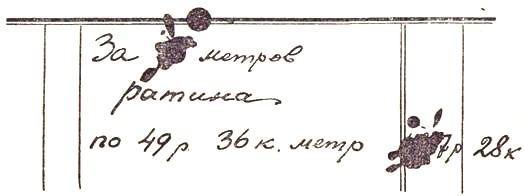 За метров
ратина
по 49р 36к. метр 7р 28к